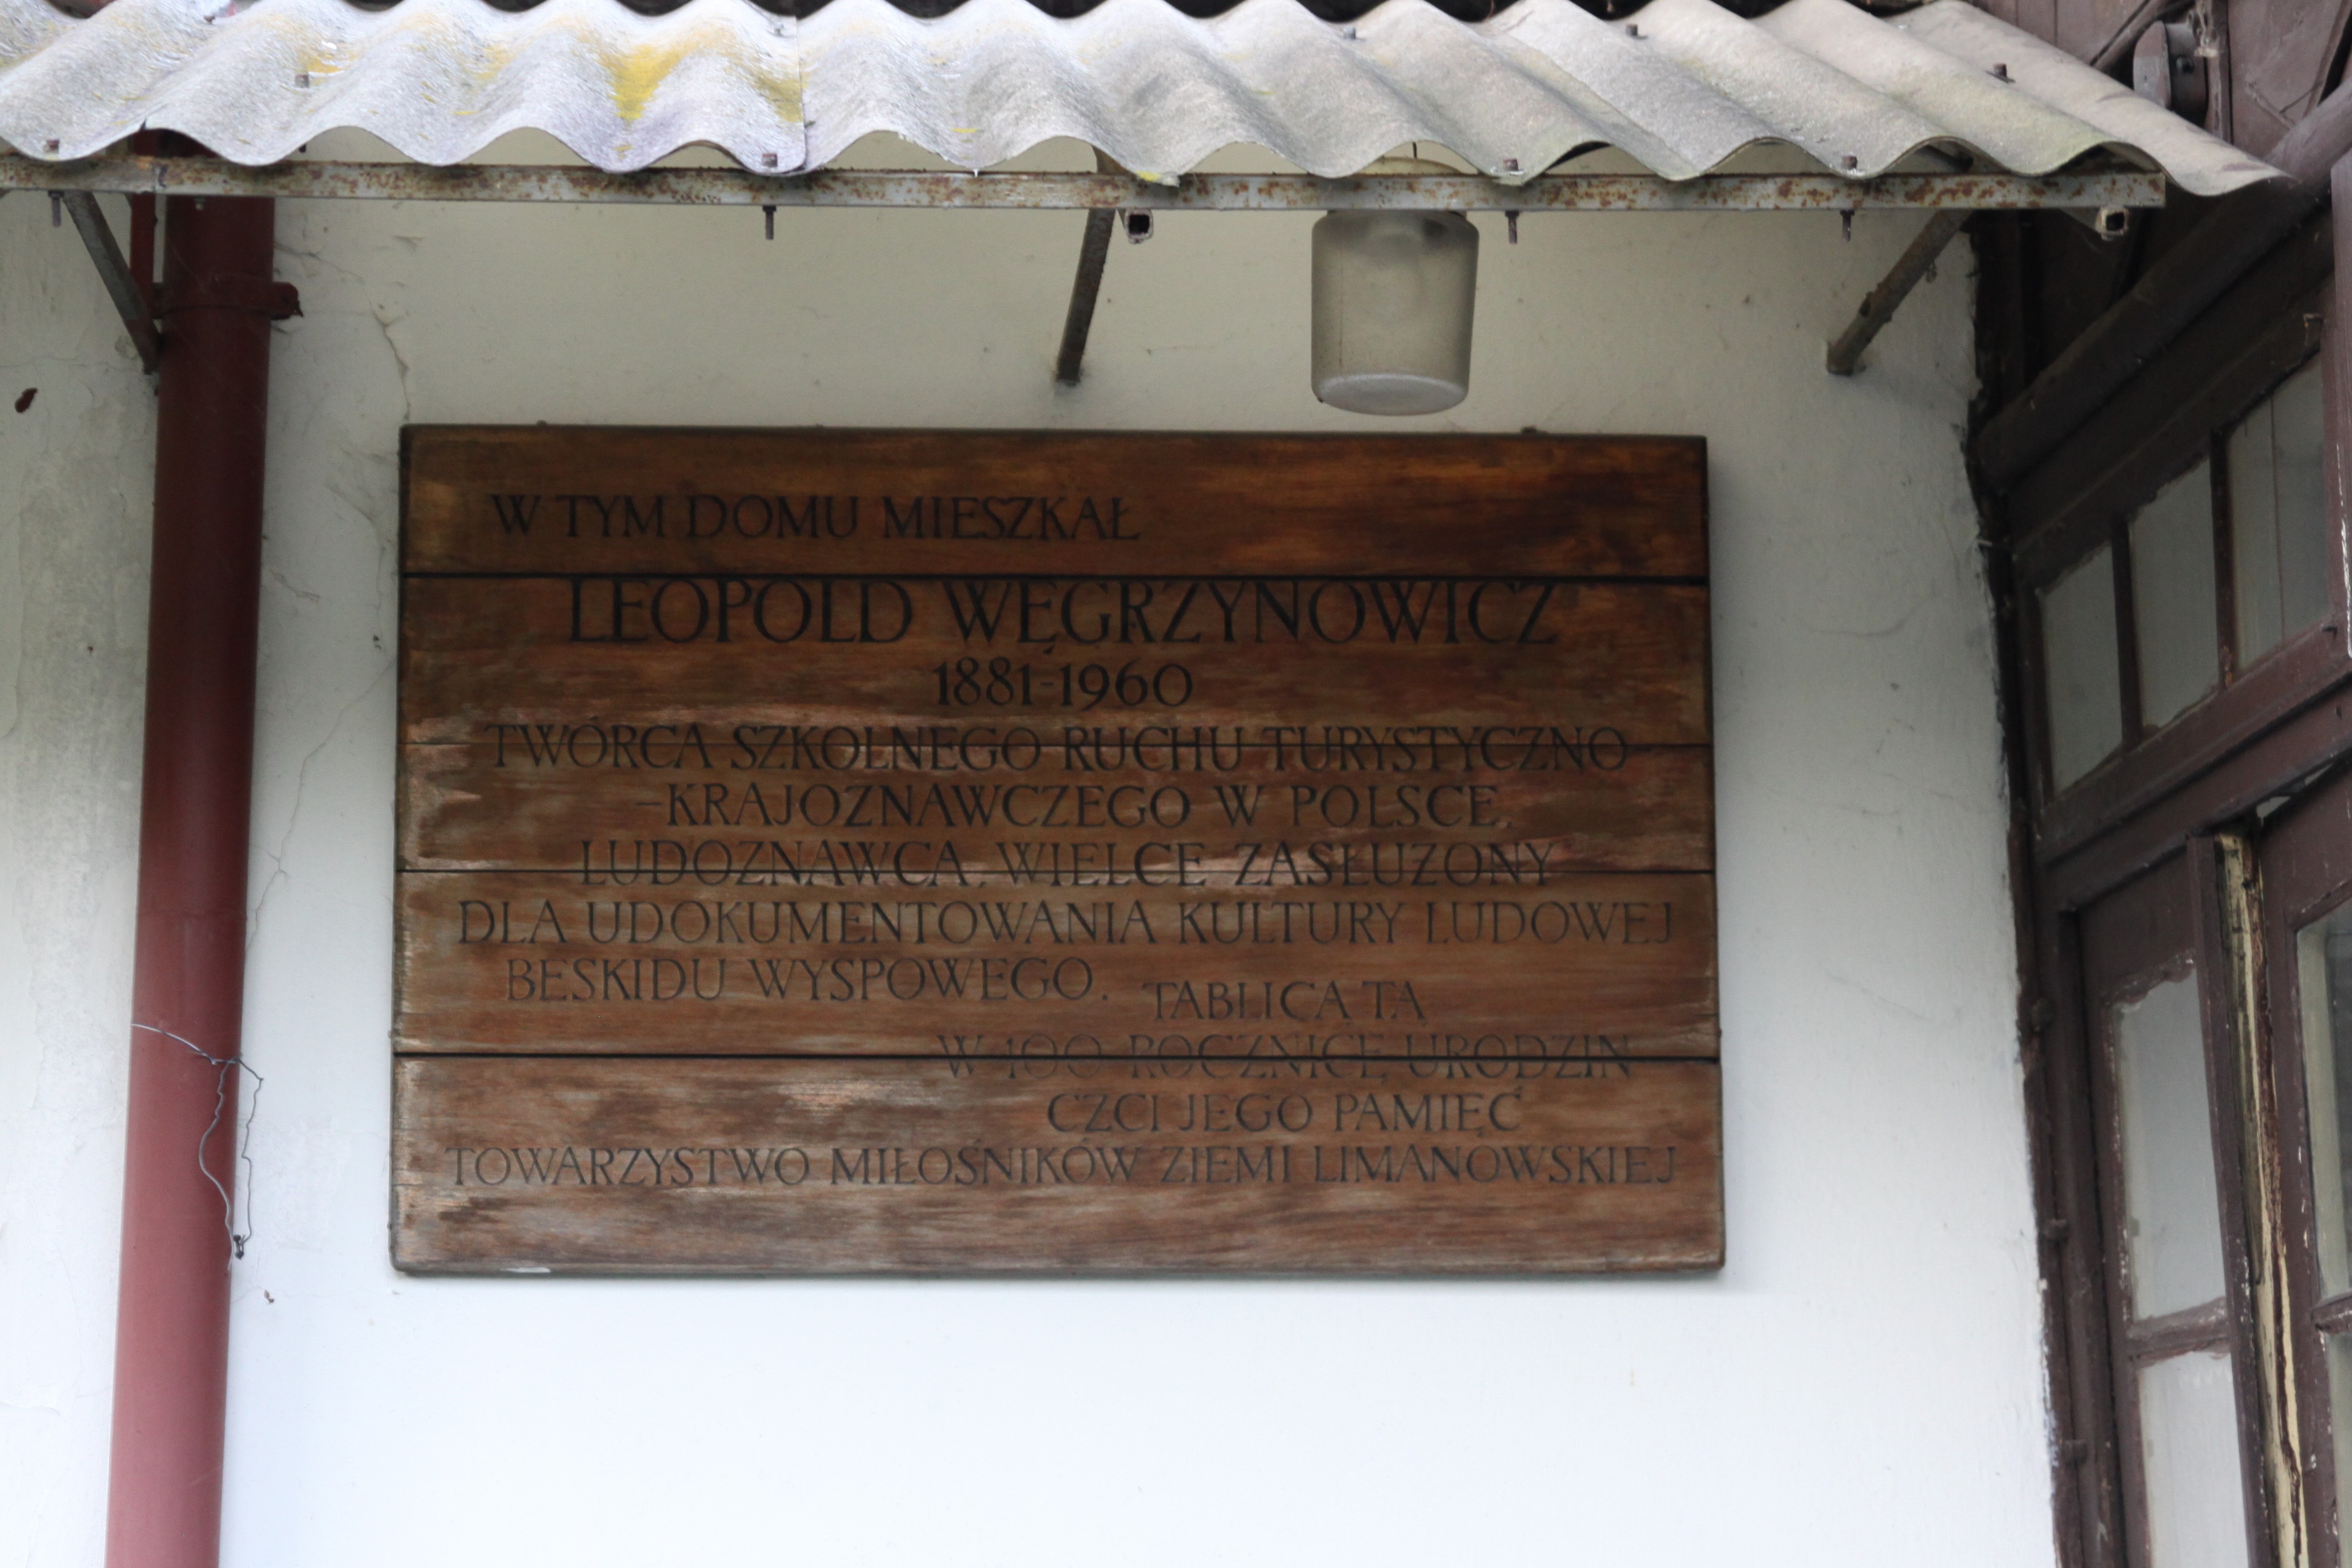 W TYM DOMU MIESZKAŁ
LEOPOLD WĘGRZYNOWICZ
1881-1960
TWÓRCA SZKOLNEGO RUCHU TURYSTYCZNO
-KRAJOZNAWCZEGO W POLSCE,
LUDOZNAWCA, WIELCE ZASŁUŻONY
DLA UDOKUMENTOWANIA KULTURY LUDOWEJ
BESKIDU WYSPOWEGO.
TABLICA TĄ
W 100 ROCZNICĘ URODZIN
CZCI JEGO PAMIĘĆ
TOWARZYSTWO MIŁOŚNIKÓW ZIEMI LIMANOWSKIEJ